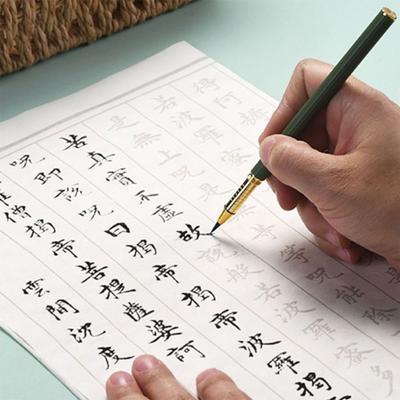 得阿耨
若波羅蜜
是無上呪是 等呪能除
苦真實不虛故說般若波羅蜜多
呪即說呪曰揭帝揭帝波羅揭
僧揭帝菩提薩婆訶 多
雲間沈度